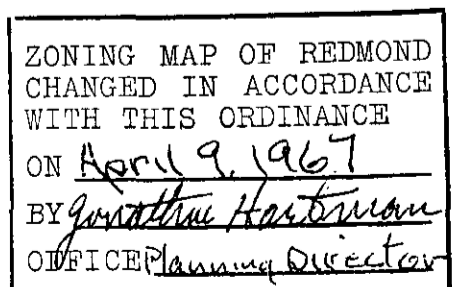 ZONING MAP OF REDMOND
CHANGED IN ACCORDANCE
WITH THIS ORDINANCE
ON April 9, 1967
BY Jonathan Hartman
OFFICE Planning Director